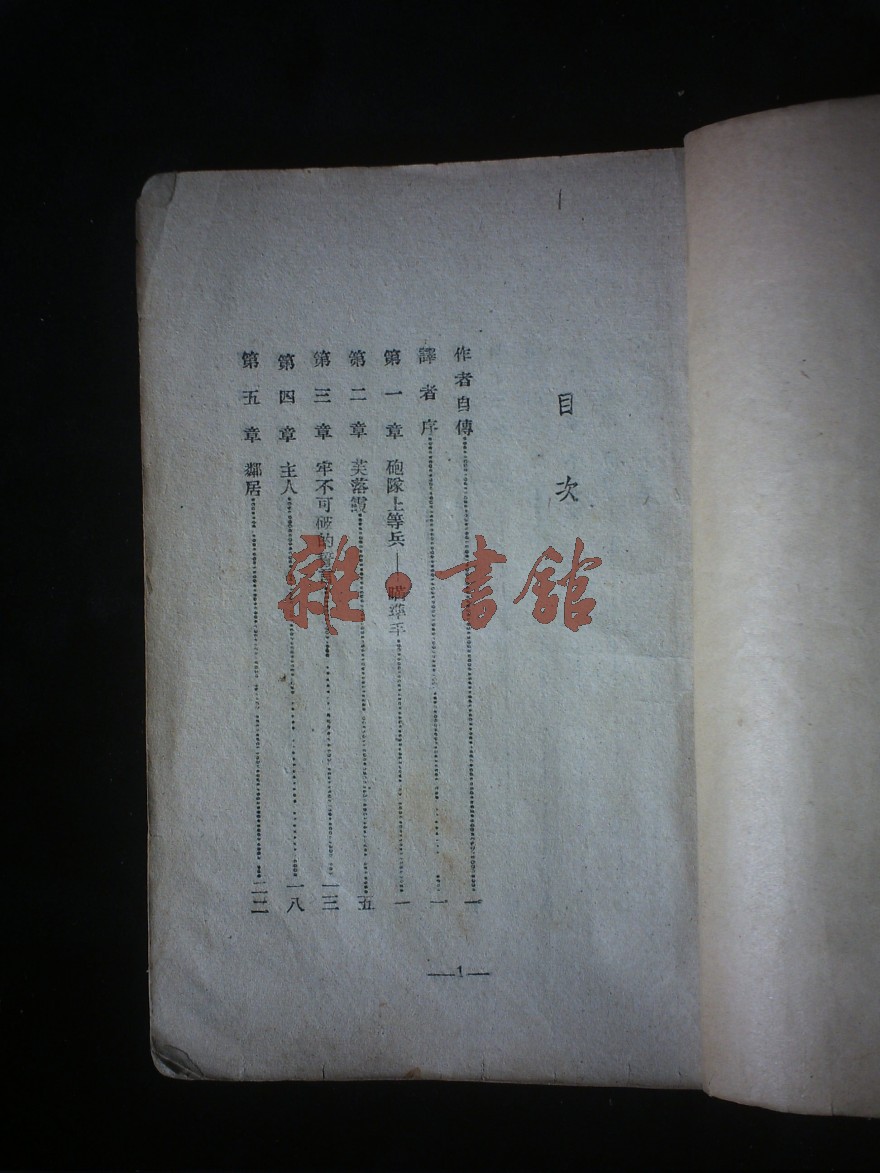 目次
作者自傳……一
譯者序……一
第一章 砲隊上等兵——瞄準手……一
第二章 芙落霞……五
第三章 牢不可破的誓言……一三
第四章 主人……一八
第五章 鄰居……二二
—1—
雜·書館